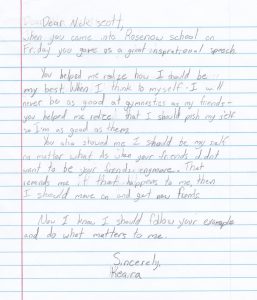 Dear Nick Scott,
when you came into Rosenow school on
Friday you gave us a great inspirational speech.
You helped me realze how I should be
my best When I think to myself I will
never be as good at gymnastics as my friends-
you helped me realze that I should push my self
so I'm as good as them.
You also showed me I should be my self
no matter what As when your friends didnt
want to be your friends enymore. That
reminds me if that happens to me, then
I should move on and get new friends.
Now I know I should follow your example
and do what matters to me.
Sincerely,